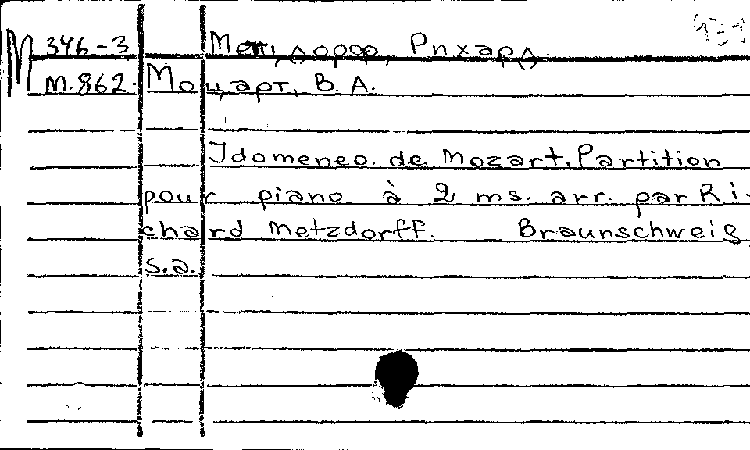 М 346-3 Метцдорф, Рихард 431
М.862. Моцарт, В. А.
Idomeneo. de Mozart. Partition
pour piano à 2 ms. arr. par Ri-
chard Metzdorff. Braunschweig
s.a.